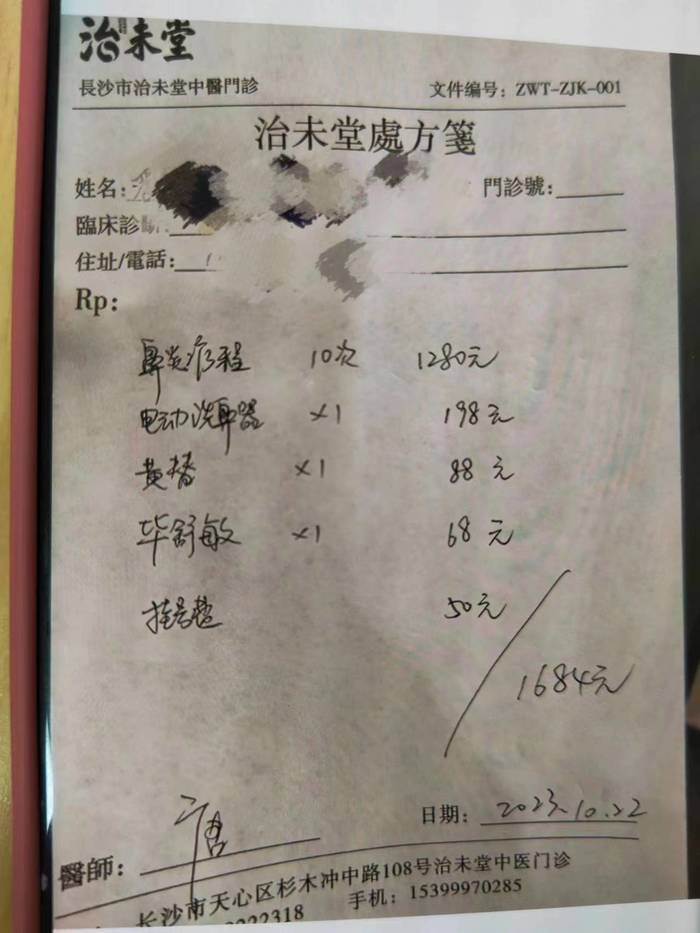 治未堂
長沙市治未堂中醫門診 文件编号：ZWT-ZJK-001
治未堂處方箋
姓名： 門診號：
臨床診斷：
住址/電話：
Rp：
鼻炎疗程 10次 1280元
电动洗鼻器 ×1 198元
黄替 ×1 88元
毕舒敏 ×1 68元
挂号费 50元
1684元
日期：2023.10.22
醫師：唐
长沙市天心区杉木冲中路108号治未堂中医门诊
2222318 手机：15399970285